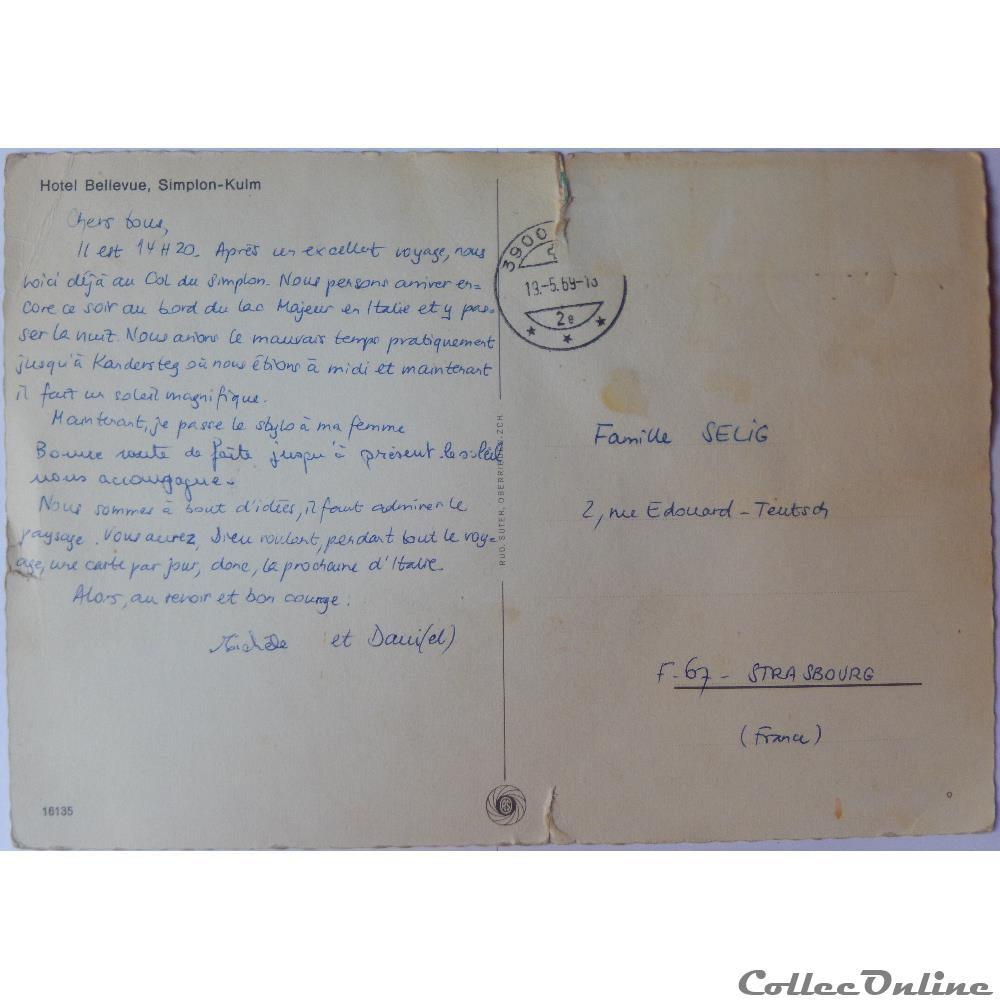 Hotel Bellevue, Simplon-Kulm
Chers tous,
Il est 14H20. Après un excellent voyage, nous
voici déjà au Col du Simplon. Nous pensons arriver en=
core ce soir au bord du Lac Majeur en Italie et y pas=
ser la nuit. Nous avions le mauvais temps pratiquement
jusqu'à Kandersteg où nous étions à midi et maintenant
il fait un soleil magnifique.
Maintenant, je passe le stylo à ma femme
Bonne route de faite jusqu'à présent. le soleil
nous accompagne.
Nous sommes à bout d'idées, il faut admirer le
paysage. Vous aurez, Dieu voulant, pendant tout le voy-
age, une carte par jour, donc, la prochaine d'Italie.
Alors, au revoir et bon courage.
et Dani(el)
16135
RUD. SUTER, OBERRIEDEN-ZCH.
3900
19.-5.69-18
2e
Famille SELIG
2, rue Edouard-Teutsch
F-67- STRASBOURG
(France)
CollecOnline